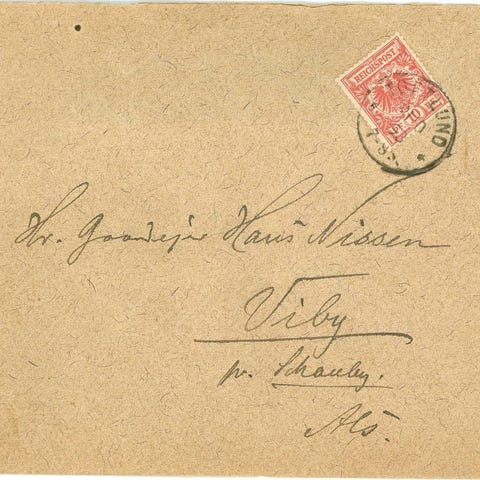 REICHSPOST
10
Hr. Gaardejer Hans Nissen
Viby
pr. Schauby.
Als.